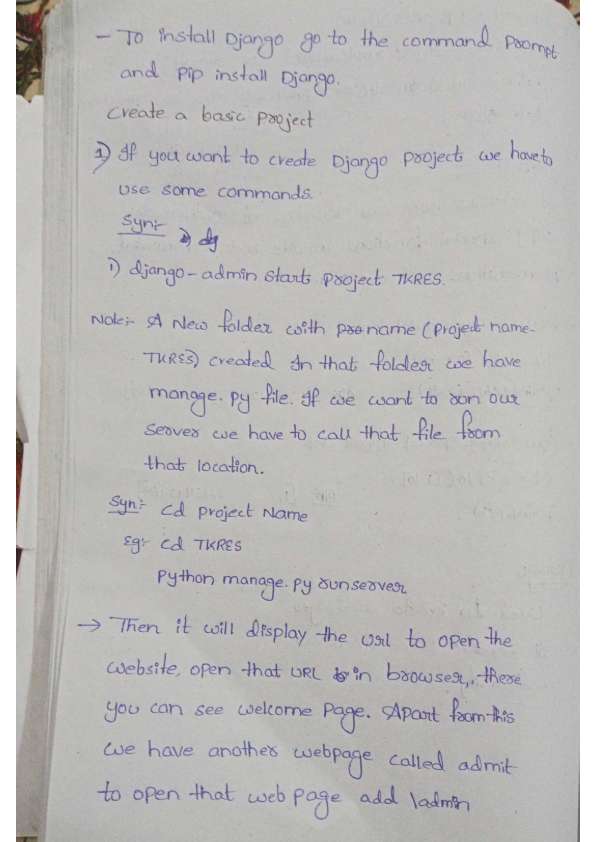 - To install Django go to the command Prompt
and pip install Django.
Create a basic project
1) If you want to create Django project we have to
use some commands.
Syn:-
1) django-admin starts project TKRES.
Note:- A New folder with pro name (Project name-
TKRES) created In that folder we have
manage.py file. If we want to run our
server we have to call that file from
that location.
Syn:- Cd project Name
Eg:- Cd TKRES
Python manage.py runserver
→ Then it will display the url to open the
website, open that URL in browser, there
you can see welcome Page. Apart from this
we have another webpage called admit
to open that web page add \admin